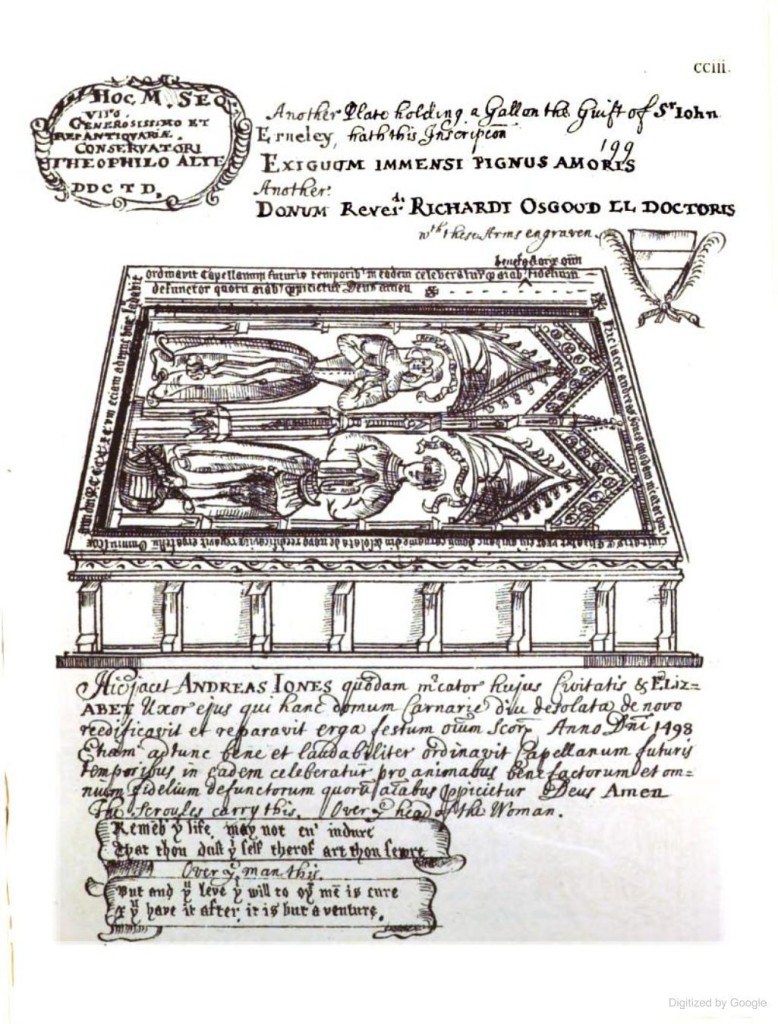 cciii.
HOC M. SEQ.
VIRO.
GENEROSISSIMO ET
REI ANTIQVARIÆ.
CONSERVATORI
THEOPHILO ALTE
DDC T D.
Another Plate holding a Gallon the Guift of Sr Iohn
Erneley, hath this Inscripcon
199
EXIGUUM IMMENSI PIGNUS AMORIS
Another:
DONUM Reverd: RICHARDI OSGOOD LL DOCTORIS
wth these Arms engraven.
benefactorū oīm
ordinavit Capellanum futuris temporib' in eadem celebratur p aīab' fidelium
defunctor quorū aīab' ppicietur Deus amen
Hic jacet andreas iones quodam mcator hui
Hic jacet ANDREAS IONES quōdam mcator hujus Civitatis & ELIZ=
ABET Uxor ejus qui hanc domum Carnarie diu desolata de novo
reedificavit et reparavit erga festum oium Scor. Anno Dni 1498
Etiam adtunc bene et laudabiliter ordinavit Capellanum futuris
temporibus in eadem celebratur pro animabus benefactorum et om=
nium fidelium defunctorum quorū aīabus ppicietur Deus Amen
The scroules carry this. Over ye head of the Woman.
Remēb y life may not en' indure
That thou dost y self therof art thou sewre
Over ye man this.
But and yu leve y will to oy mē is cure
yu have it after, it is but a venture.
Digitized by Google